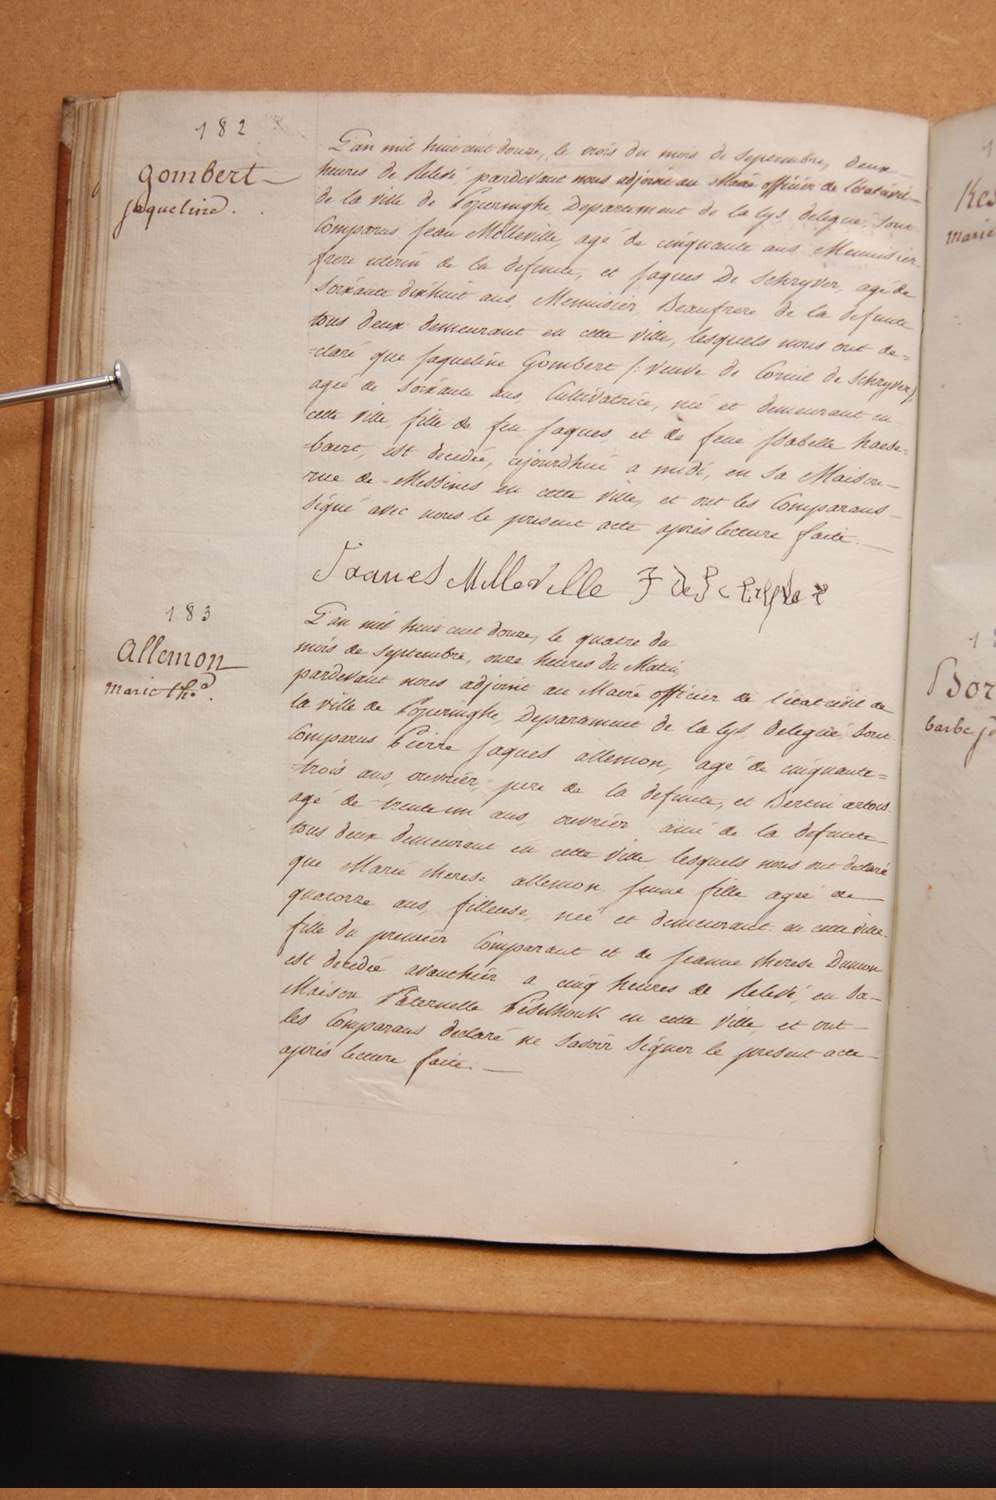 182
Gombert
Jaqueline.
L'an mil huit cent douze, le trois du mois de Septembre, deux
heures de Relevé pardevant nous adjoint au Maire officier de l'état civil
de la ville de Poperinghe, Departement de la Lys, delegué, sont
Comparus Jean Melleville, agé de cinquante ans Menuisier
frere uterin de la defunte, et Jaques De Schryver, agé de
Soixante dix huit ans, Menuisier, Beaufrere de la defunte
tous deux demeurant en cette ville, lesquels nous ont de=
=claré que Jaqueline Gombert (: veuve de Cornil de Schryver:)
agée de Soixante ans, Cultivatrice, née et demeurant en
cette ville, fille de feu Jaques et de feue Isabelle haese=
=baert, est decedée, cejourdhui a midi, en sa Maison
rue de Messines en cette ville, et ont les Comparans
signé avec nous le present acte après lecture faite.
Joanes Melleville J de Schryver
183
Allemon
marie th.
L'an mil huit cent douze, le quatre du
mois de Septembre, onze heures du Matin,
pardevant nous adjoint au Maire officier de l'état civil de
la ville de Poperinghe, Departement de la Lys, delegué, sont
Comparus Pierre Jaques allemon, agé de cinquante=
=trois ans, ouvrier, pere de la defunte, et Bertin artois
agé de trente un ans, ouvrier, ami de la defunte
tous deux demeurant en cette ville lesquels nous ont declaré
que Marie therese allemon jeune fille agée de
quatorze ans, fileuse, née et demeurant en cette ville
fille du premier Comparant et de Jeanne therese Dumon
est decedée avanthier a cinq heures de Relevé, en sa
Maison Paternelle en cette ville, et ont
les Comparans declaré ne savoir signer le present acte
après lecture faite.
Kes
marie
Bor
barbe